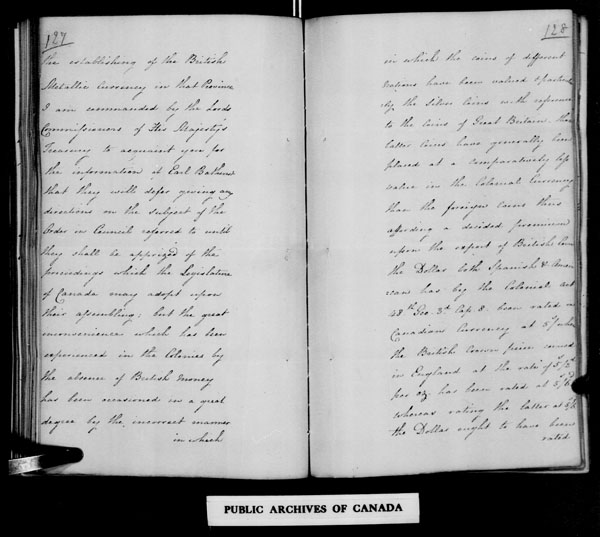 127
the establishing of the British
Metallic Currency in that Province
I am commanded by the Lords
Commissioners of His Majesty's
Treasury to acquaint you for
the information of Earl Bathurst
that they will defer giving any
directions on the subject of the
Order in Council referred to until
they shall be apprized of the
proceedings which the Legislature
of Canada may adopt upon
their assembling; but the great
inconvenience which has been
experienced in the Colonies by
the absence of British Money
has been occasioned in a great
degree by the incorrect manner
in which
128
in which the coins of different
Nations have been valued
the Silver Coins with reference
to the Coins of Great Britain, the
latter coins have generally been
placed at a comparatively less
value in the Colonial Currency
than the foreign coins thus
affording a decided premium
upon the export of British Coin
the Dollar both Spanish & Ameri
can has by the Colonial act
48th Geo. 3d Cap. 8. been rated in
Canadian Currency at 5/ when
the British Crown piece coined
in England at the rate of 5/2d
per oz. has been rated at 5/6d
whereas rating the latter at 5/6
the Dollar ought to have been
rated
PUBLIC ARCHIVES OF CANADA